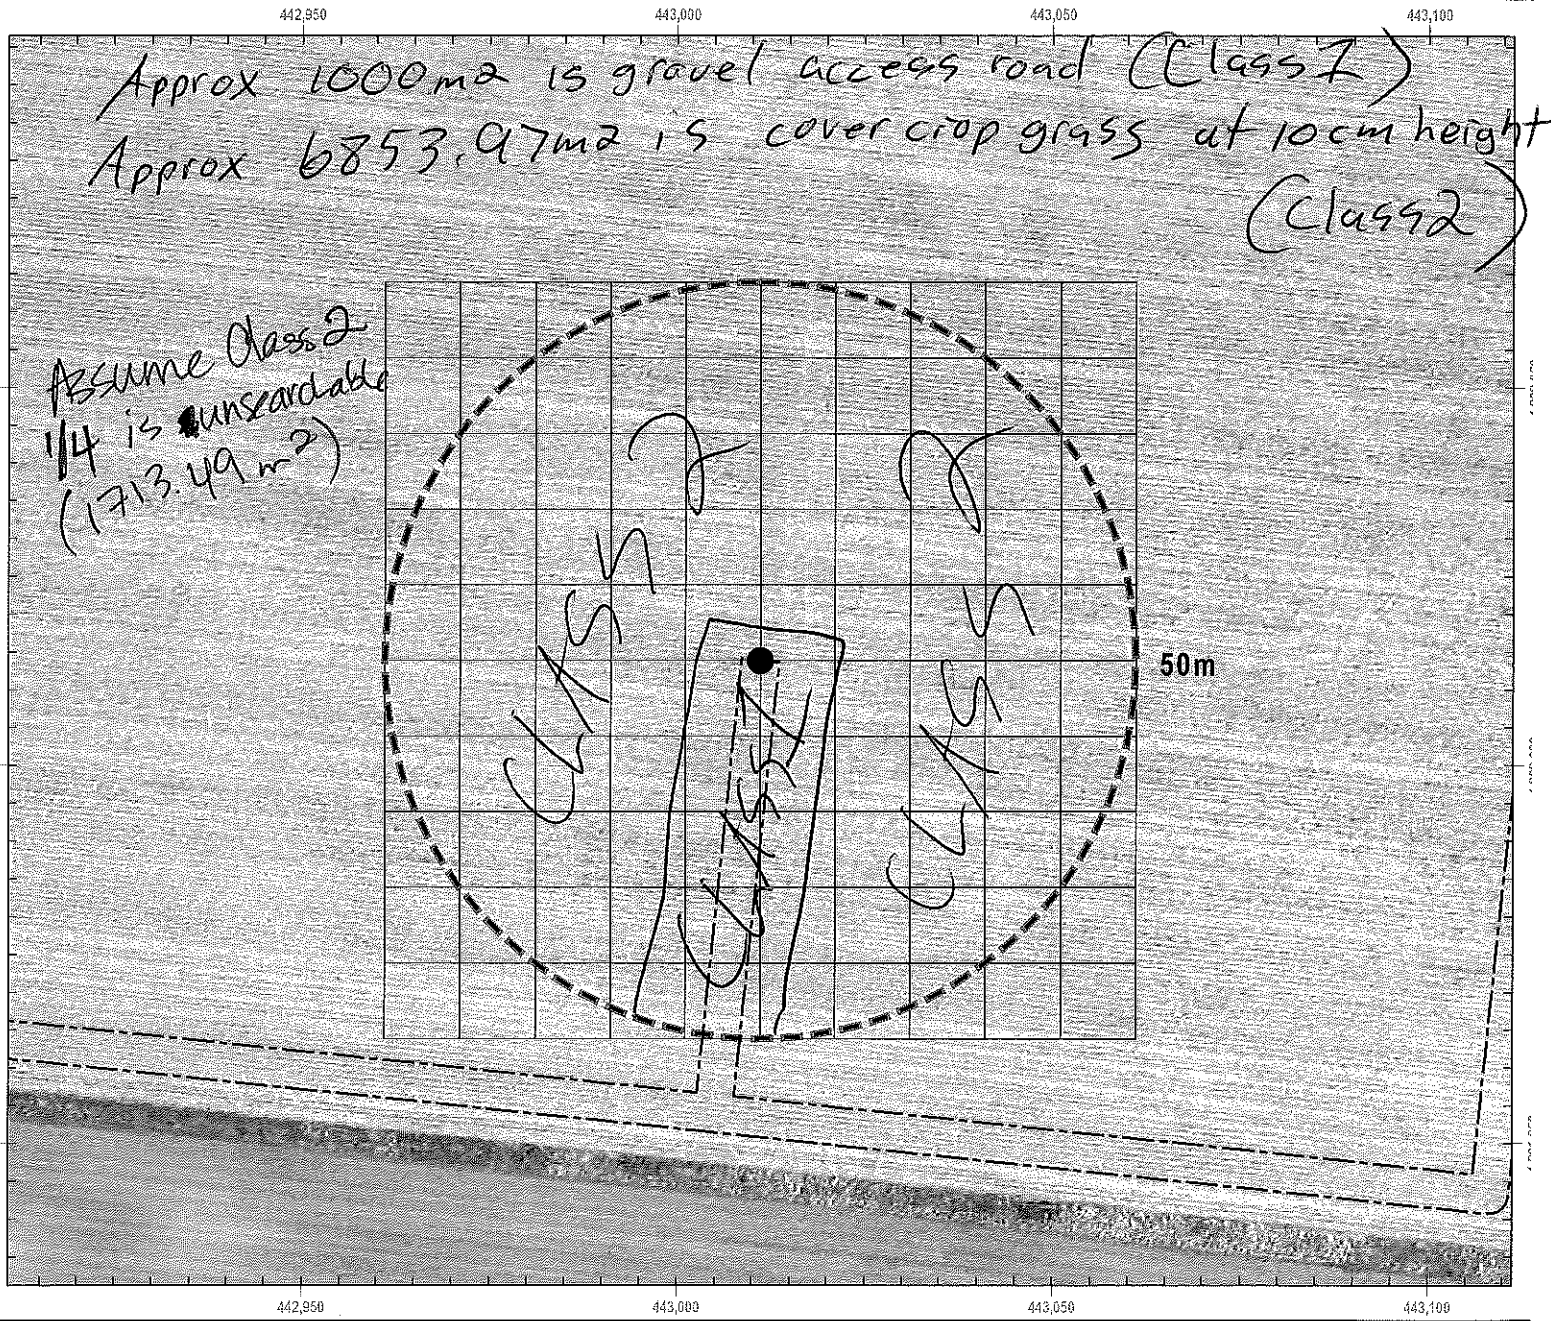 442,950 443,000 443,050 443,100
Approx 1000m2 is gravel access road (Class 1)
Approx 6853.97m2 is cover crop grass at 10cm height
(Class2)
Assume Class 2
1/4 is unsearchable
(1713.49 m²)
CLASS 2
CLASS 2
CLASS 1
50m
442,950 443,000 443,050 443,100